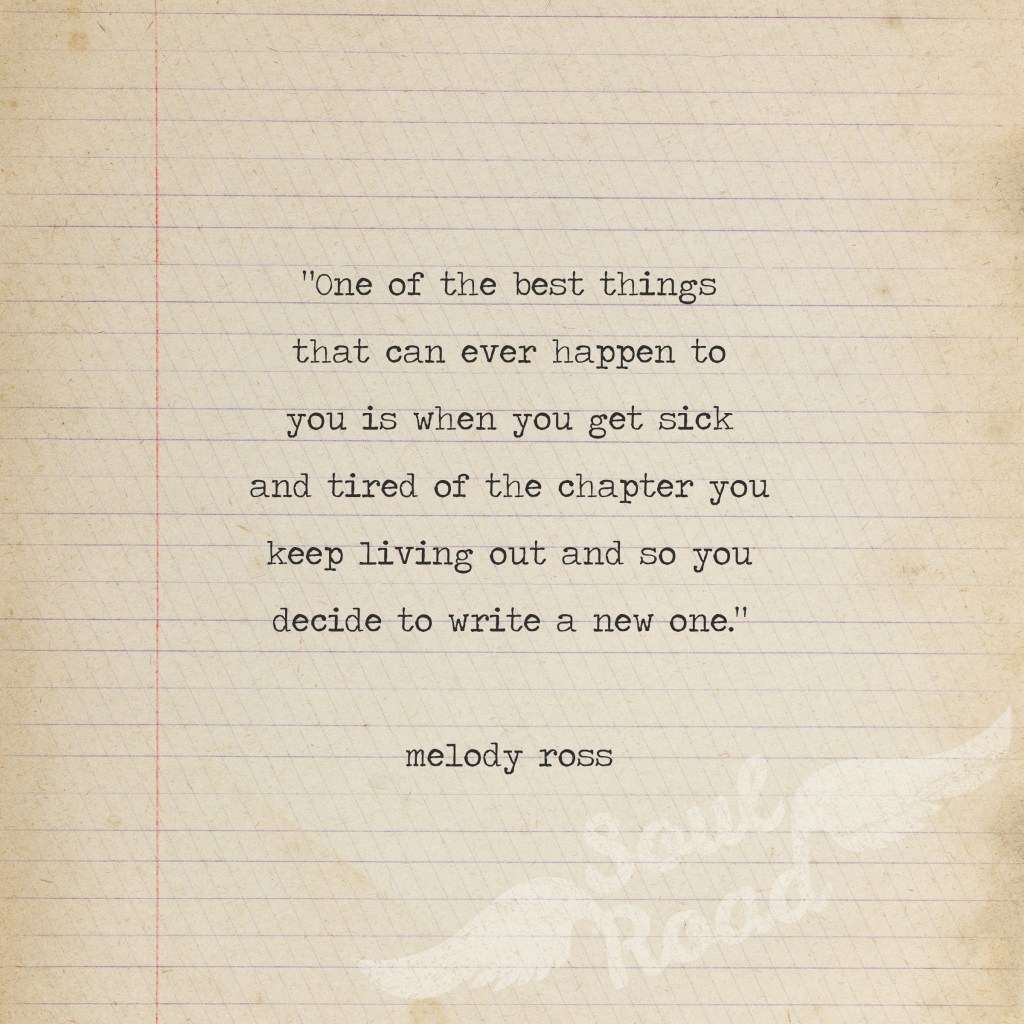 "One of the best things
that can ever happen to
you is when you get sick
and tired of the chapter you
keep living out and so you
decide to write a new one."
melody ross
Soul
Road